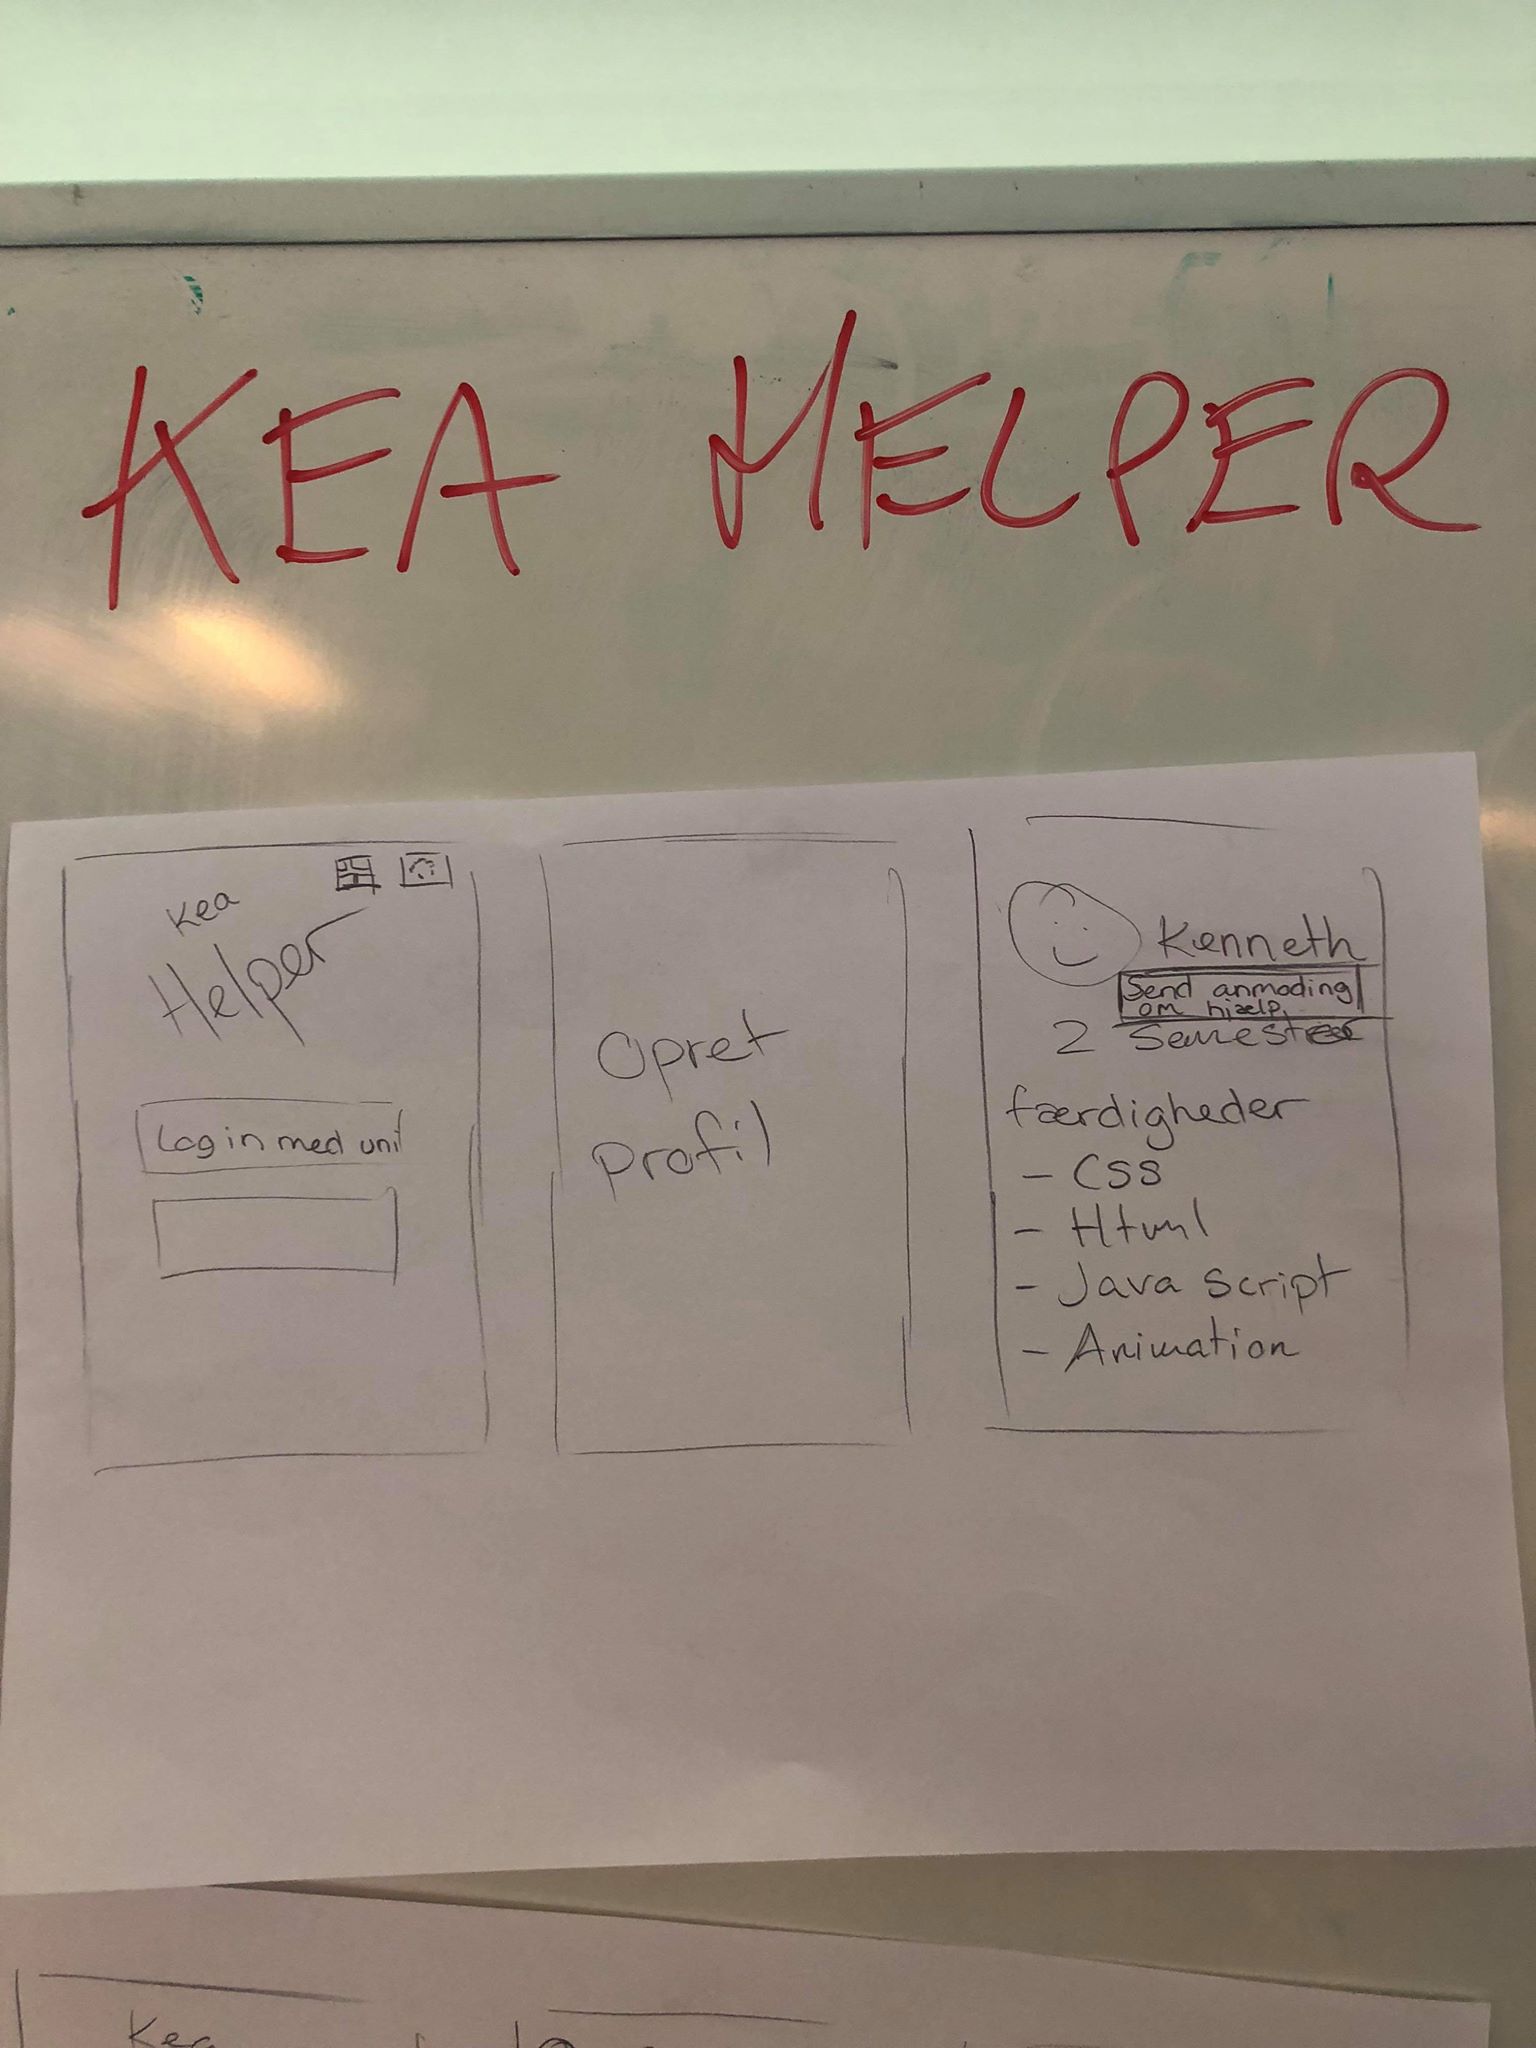 KEA HELPER
Kea
Helper
Log in med uni
Opret
profil
Kenneth
Send anmoding
om hjælp
2 Semester
færdigheder
- CSS
- Html
- Java script
- Animation
Kea